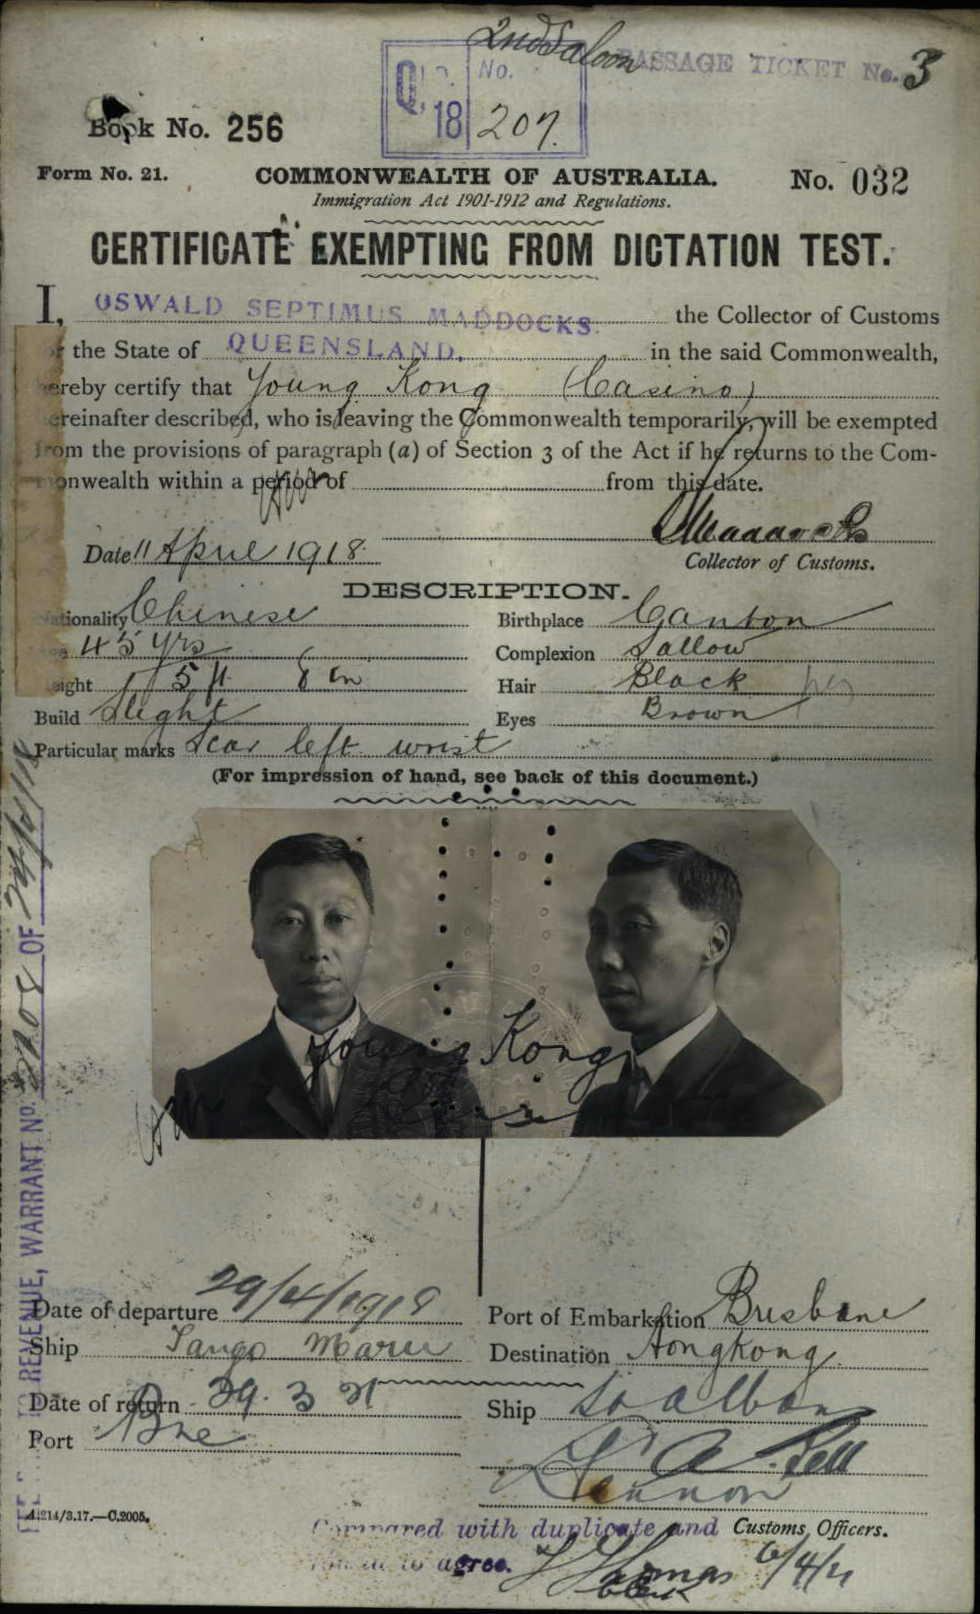 2nd Saloon
PASSAGE TICKET No. 3
Q'LD. 18 No. 207.
Book No. 256
Form No. 21.
COMMONWEALTH OF AUSTRALIA.
No. 032
Immigration Act 1901-1912 and Regulations.
CERTIFICATE EXEMPTING FROM DICTATION TEST.
I, OSWALD SEPTIMUS MADDOCKS the Collector of Customs
the State of QUEENSLAND. in the said Commonwealth,
hereby certify that Young Kong (Casino)
hereinafter described, who is leaving the Commonwealth temporarily, will be exempted
from the provisions of paragraph (a) of Section 3 of the Act if he returns to the Com-
monwealth within a period of from this date.
Date 11 April 1918.
Collector of Customs.
DESCRIPTION.
Nationality Chinese
Birthplace Canton
45 yrs
Complexion Sallow
Height 5 ft 8 in
Hair Black
Build Slight
Eyes Brown
Particular marks Scar left wrist
(For impression of hand, see back of this document.)
Young Kong
Date of departure 29/4/1918
Port of Embarkation Brisbane
Ship Tango Maru
Destination Hongkong.
Date of return 29. 3 21
Ship St albans
Port Bne
A.214/3.17.—C.2005.
Compared with duplicate and
Customs Officers.
to agree.
6/4/21
TO REVENUE, WARRANT No. OF